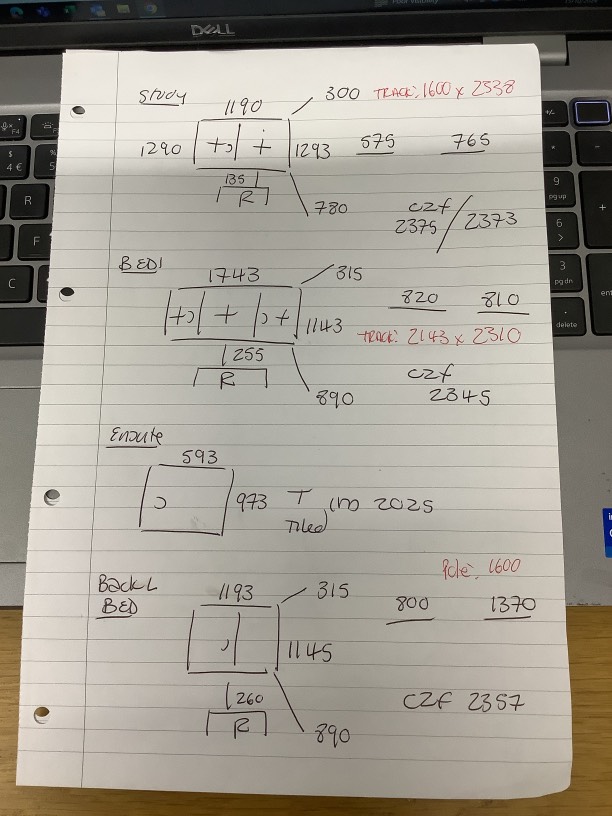 DELL
Study
1190
300
TRACK: 1600 x 2338
1290
1293
575
765
135
R
780
CZF
2375 / 2373
BED1
1743
315
820
810
1143
TRACK: 2143 x 2310
255
R
CZF
2345
890
Ensuite
593
973
T
Tiled
2025
Pole: 1600
Back L
BED
1193
315
800
1370
1145
260
R
CZF 2357
890